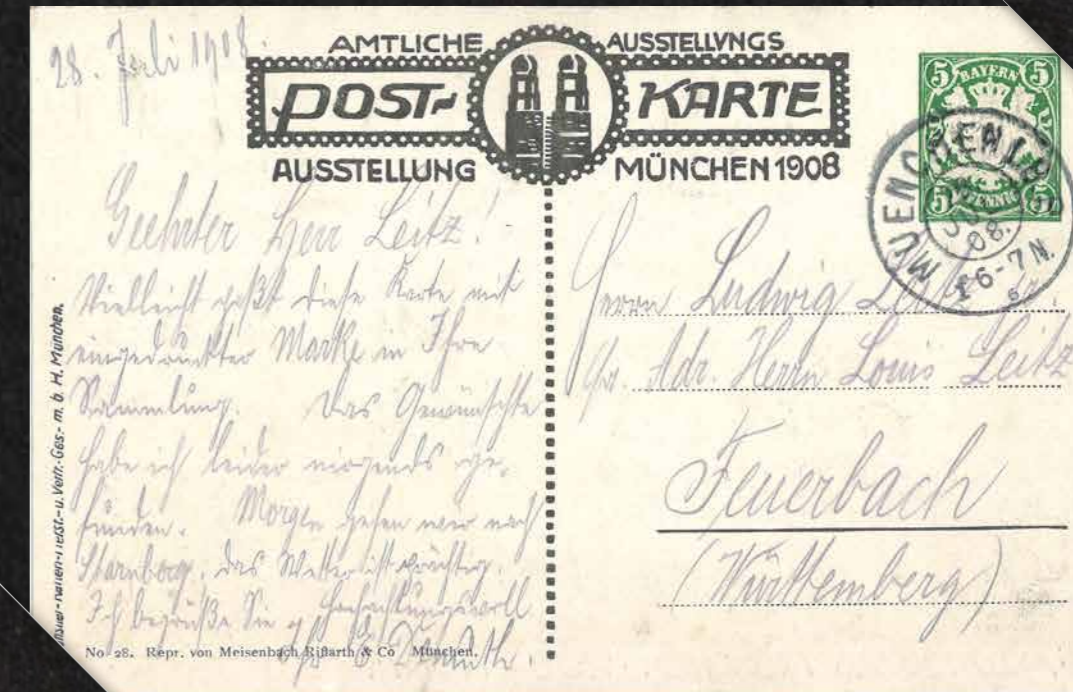 28. Juli 1908.
AMTLICHE AUSSTELLVNGS
POST- KARTE
AUSSTELLUNG MÜNCHEN 1908
5 BAYERN 5
5 PFENNIG 5
MUENCHEN
08.
6-7 N.
Geehrter Herr Leitz!
Vielleicht paßt diese Karte mit
eingedruckter Marke in Ihre
Sammlung. Das Gewünschte
habe ich leider nirgends ge-
funden. Morgen gehen wir nach
Starnberg, das Wetter ist prächtig.
Ich begrüße Sie hochachtungsvoll
Herrn Ludwig
Adr. Herrn Louis Leitz
Feuerbach
(Württemberg)
Verfr.-Ges. m. b. H. München.
No 28. Repr. von Meisenbach Riffarth & Co München.